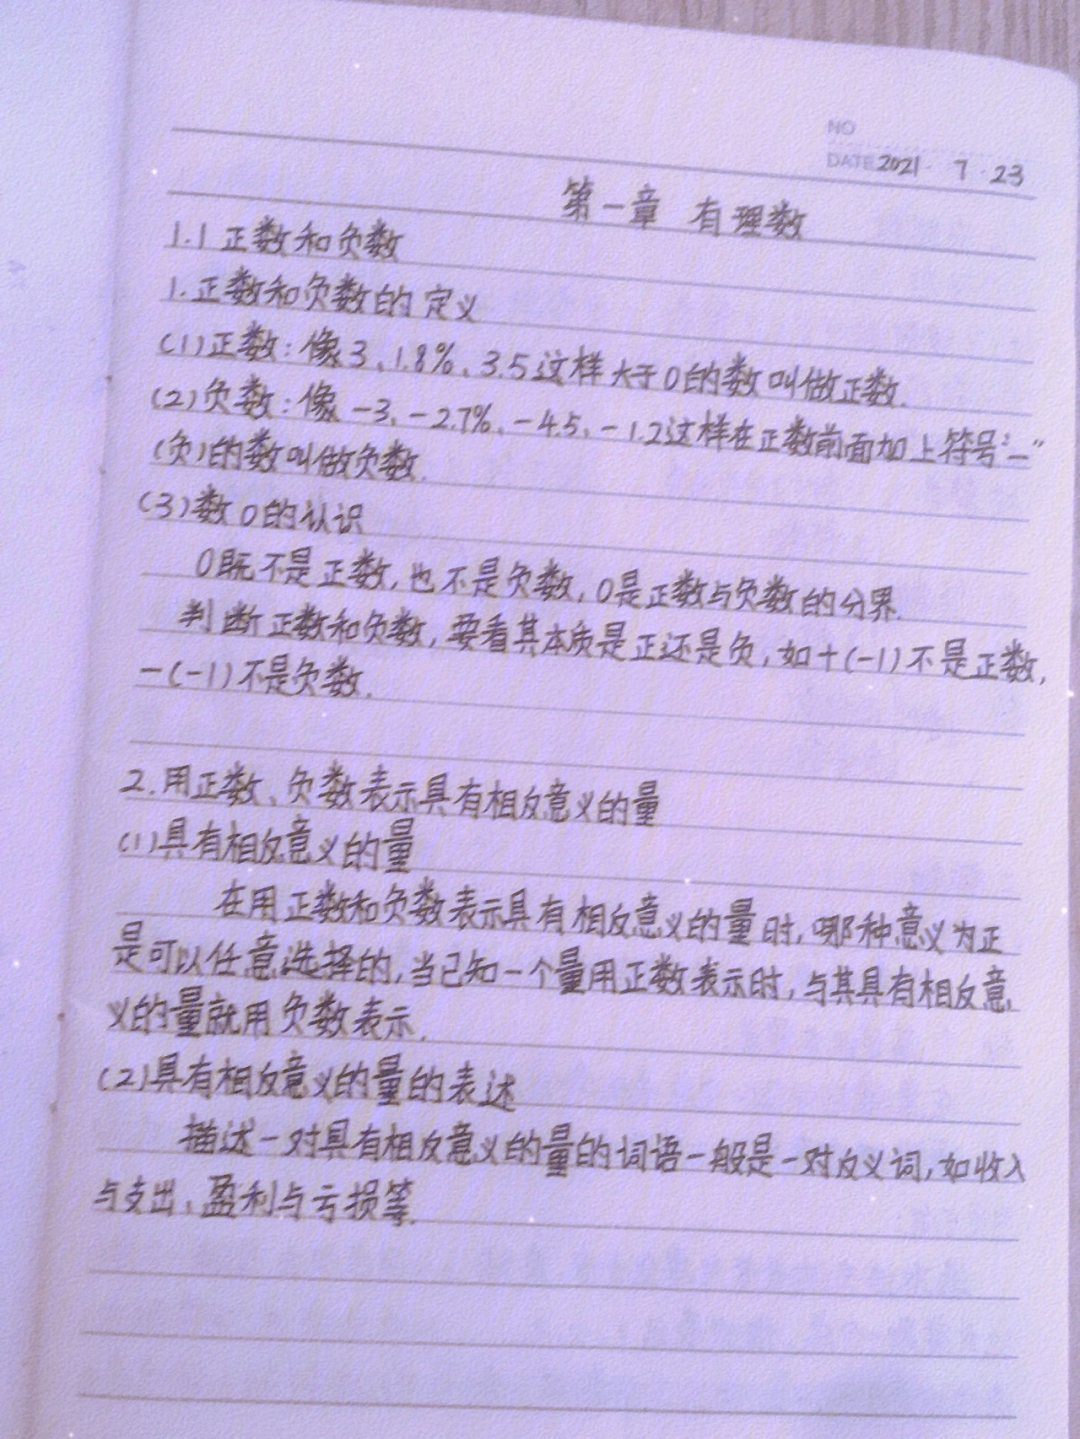 NO
DATE 2021 . 7 . 23
第一章 有理数
1.1 正数和负数
1.正数和负数的定义
(1)正数:像3、1.8%、3.5这样大于0的数叫做正数.
(2)负数:像-3、-2.7%、-4.5、-1.2这样在正数前面加上符号“-”
(负)的数叫做负数.
(3)数0的认识
0既不是正数,也不是负数,0是正数与负数的分界.
判断正数和负数,要看其本质是正还是负,如+(-1)不是正数,
-(-1)不是负数.
2.用正数、负数表示具有相反意义的量
(1)具有相反意义的量
在用正数和负数表示具有相反意义的量时,哪种意义为正
是可以任意选择的,当已知一个量用正数表示时,与其具有相反意
义的量就用负数表示.
(2)具有相反意义的量的表述
描述一对具有相反意义的量的词语一般是一对反义词,如收入
与支出、盈利与亏损等.